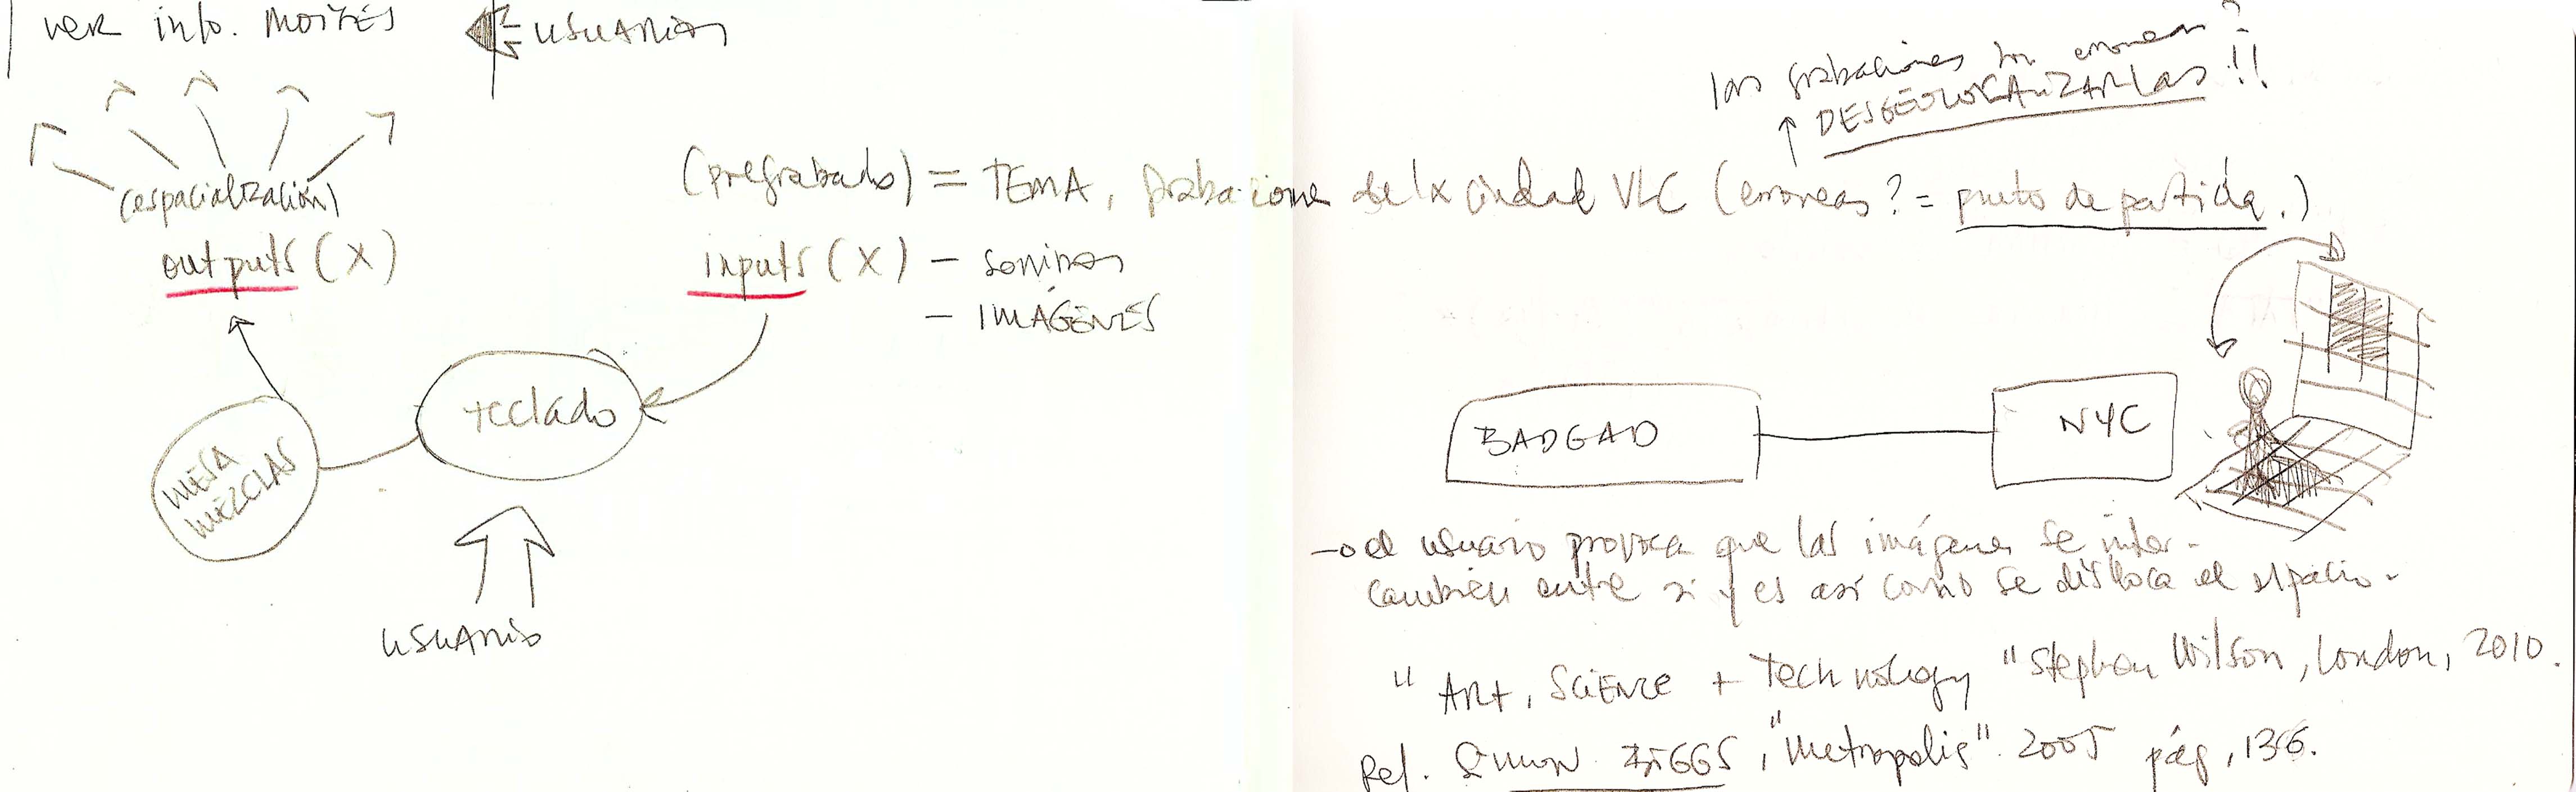 ver info. MOISÉS
USUARIOS
(espacialización)
outputs (X)
(pregrabado) = TEMA, grabaciones de la ciudad VLC (erroneas? = punto de partida.)
las grabaciones son erroneas?
DESGEOLOCALIZARLAS!!
inputs (X) - sonidos
- IMÁGENES
teclado
MESA
MEZCLAS
USUARIO
BADGAD
NYC
el usuario provoca que las imágenes se inter-
cambien entre si y es así como se disloca el espacio.
"Art, SCIENCE + Technology" Stephen Wilson, London, 2010.
Ref. Simon BIGGS, "Metropolis". 2005 pág, 136.